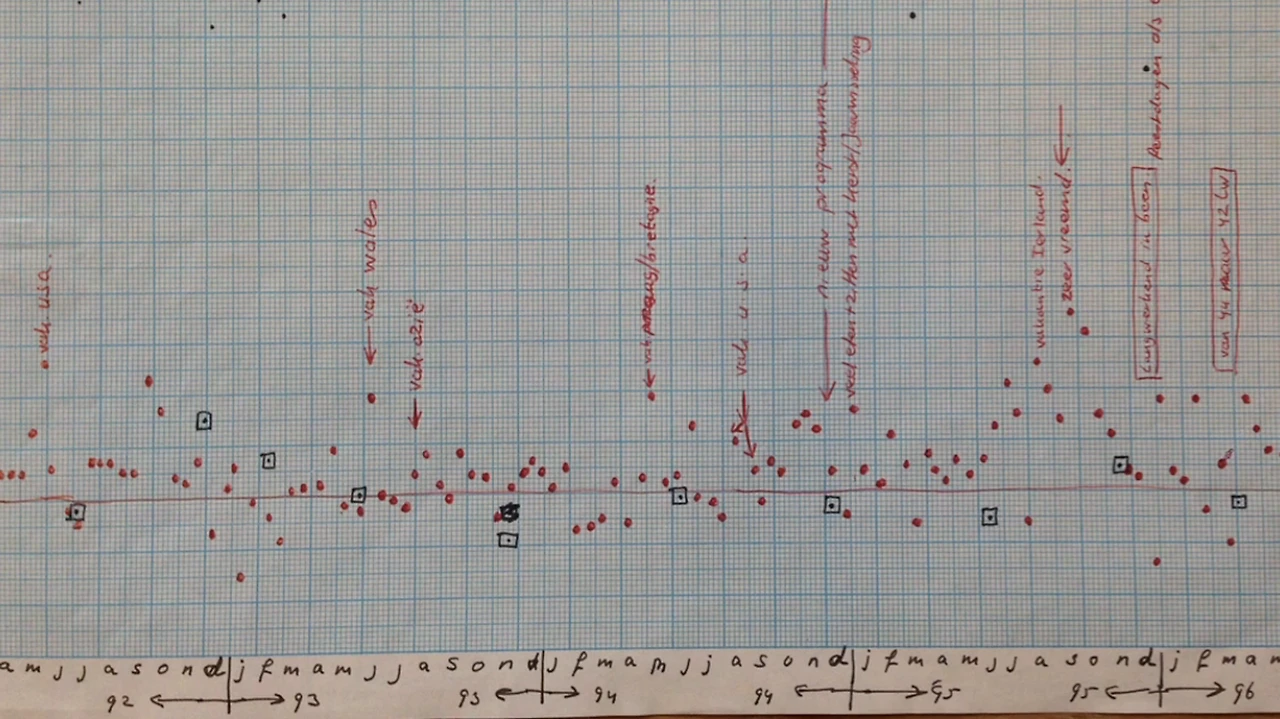 vak. usa.
vak wales
vak. azië
vak. praag/bretagne.
vak. u.s.a.
nieuw programma
veel eten + zitten met kerst/jaarwisseling
vakantie Ierland.
zeer vreemd.
Langwerkend in been
Feestdagen als
van 44 naar 42 (w)
a m j j a s o n d j f m a m j j a s o n d j f m a m j j a s o n d j f m a m j j a s o n d j f m a m
92 93 93 94 94 95 95 96